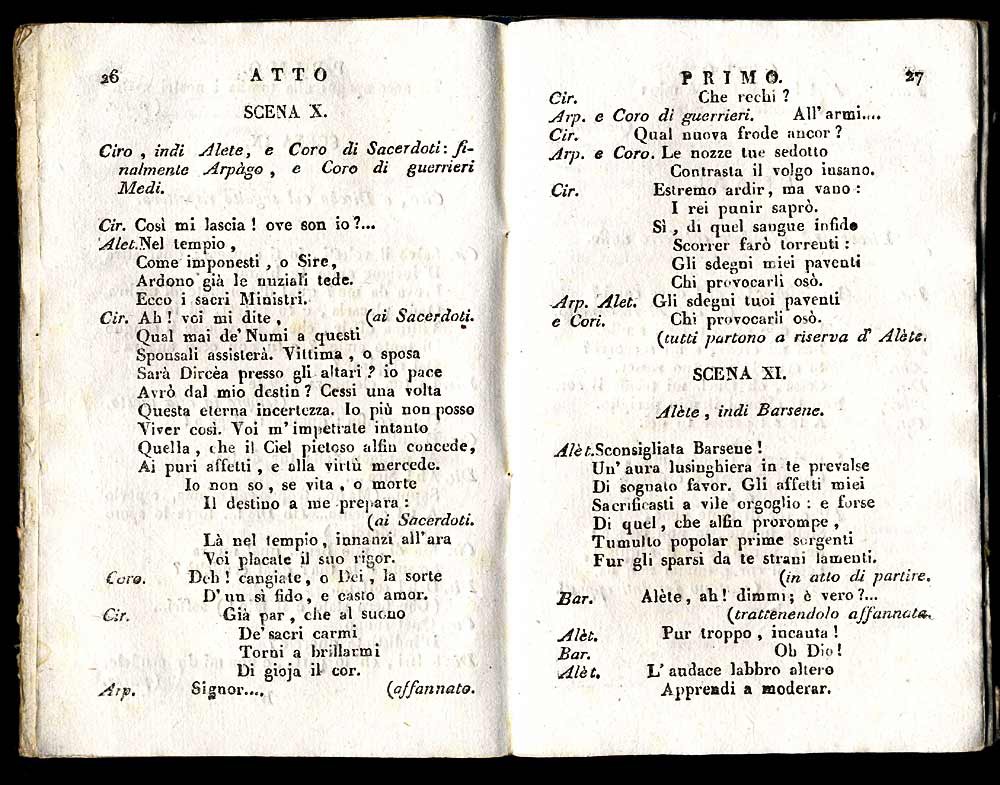 26 ATTO
SCENA X.
Ciro , indi Alete, e Coro di Sacerdoti: fi-
nalmente Arpàgo , e Coro di guerrieri
Medi.
Cir. Così mi lascia ! ove son io ?...
Alet.Nel tempio ,
Come imponesti , o Sire,
Ardono già le nuziali tede.
Ecco i sacri Ministri.
Cir. Ah ! voi mi dite , (ai Sacerdoti.
Qual mai de' Numi a questi
Sponsali assisterà. Vittima , o sposa
Sarà Dircèa presso gli altari ? io pace
Avrò dal mio destin ? Cessi una volta
Questa eterna incertezza. Io più non posso
Viver così. Voi m' impetrate intanto
Quella , che il Ciel pietoso alfin concede,
Ai puri affetti , e alla virtù mercede.
Io non so , se vita , o morte
Il destino a me prepara :
(ai Sacerdoti.
Là nel tempio , innanzi all' ara
Voi placate il suo rigor.
Coro. Deh ! cangiate, o Dei , la sorte
D' un sì fido , e casto amor.
Cir. Già par , che al suono
De' sacri carmi
Torni a brillarmi
Di gioja il cor.
Arp. Signor.... (affannato.
PRIMO. 27
Cir. Che rechi ?
Arp. e Coro di guerrieri. All' armi....
Cir. Qual nuova frode ancor ?
Arp. e Coro. Le nozze tue sedotto
Contrasta il volgo insano.
Cir. Estremo ardir, ma vano :
I rei punir saprò.
Sì , di quel sangue infido
Scorrer farò torrenti :
Gli sdegni miei paventi
Chi provocarli osò.
Arp. Alet. Gli sdegni tuoi paventi
e Cori. Chi provocarli osò.
(tutti partono a riserva d' Alète.
SCENA XI.
Alète , indi Barsene.
Alèt.Sconsigliata Barsene !
Un' aura lusinghiera in te prevalse
Di sognato favor. Gli affetti miei
Sacrificasti a vile orgoglio : e forse
Di quel , che alfin prorompe ,
Tumulto popolar prime sorgenti
Fur gli sparsi da te strani lamenti.
(in atto di partire.
Bar. Alète, ah! dimmi; è vero ?...
(trattenendolo affannata.
Alèt. Pur troppo , incauta !
Bar. Oh Dio !
Alèt. L' audace labbro altero
Apprendi a moderar.